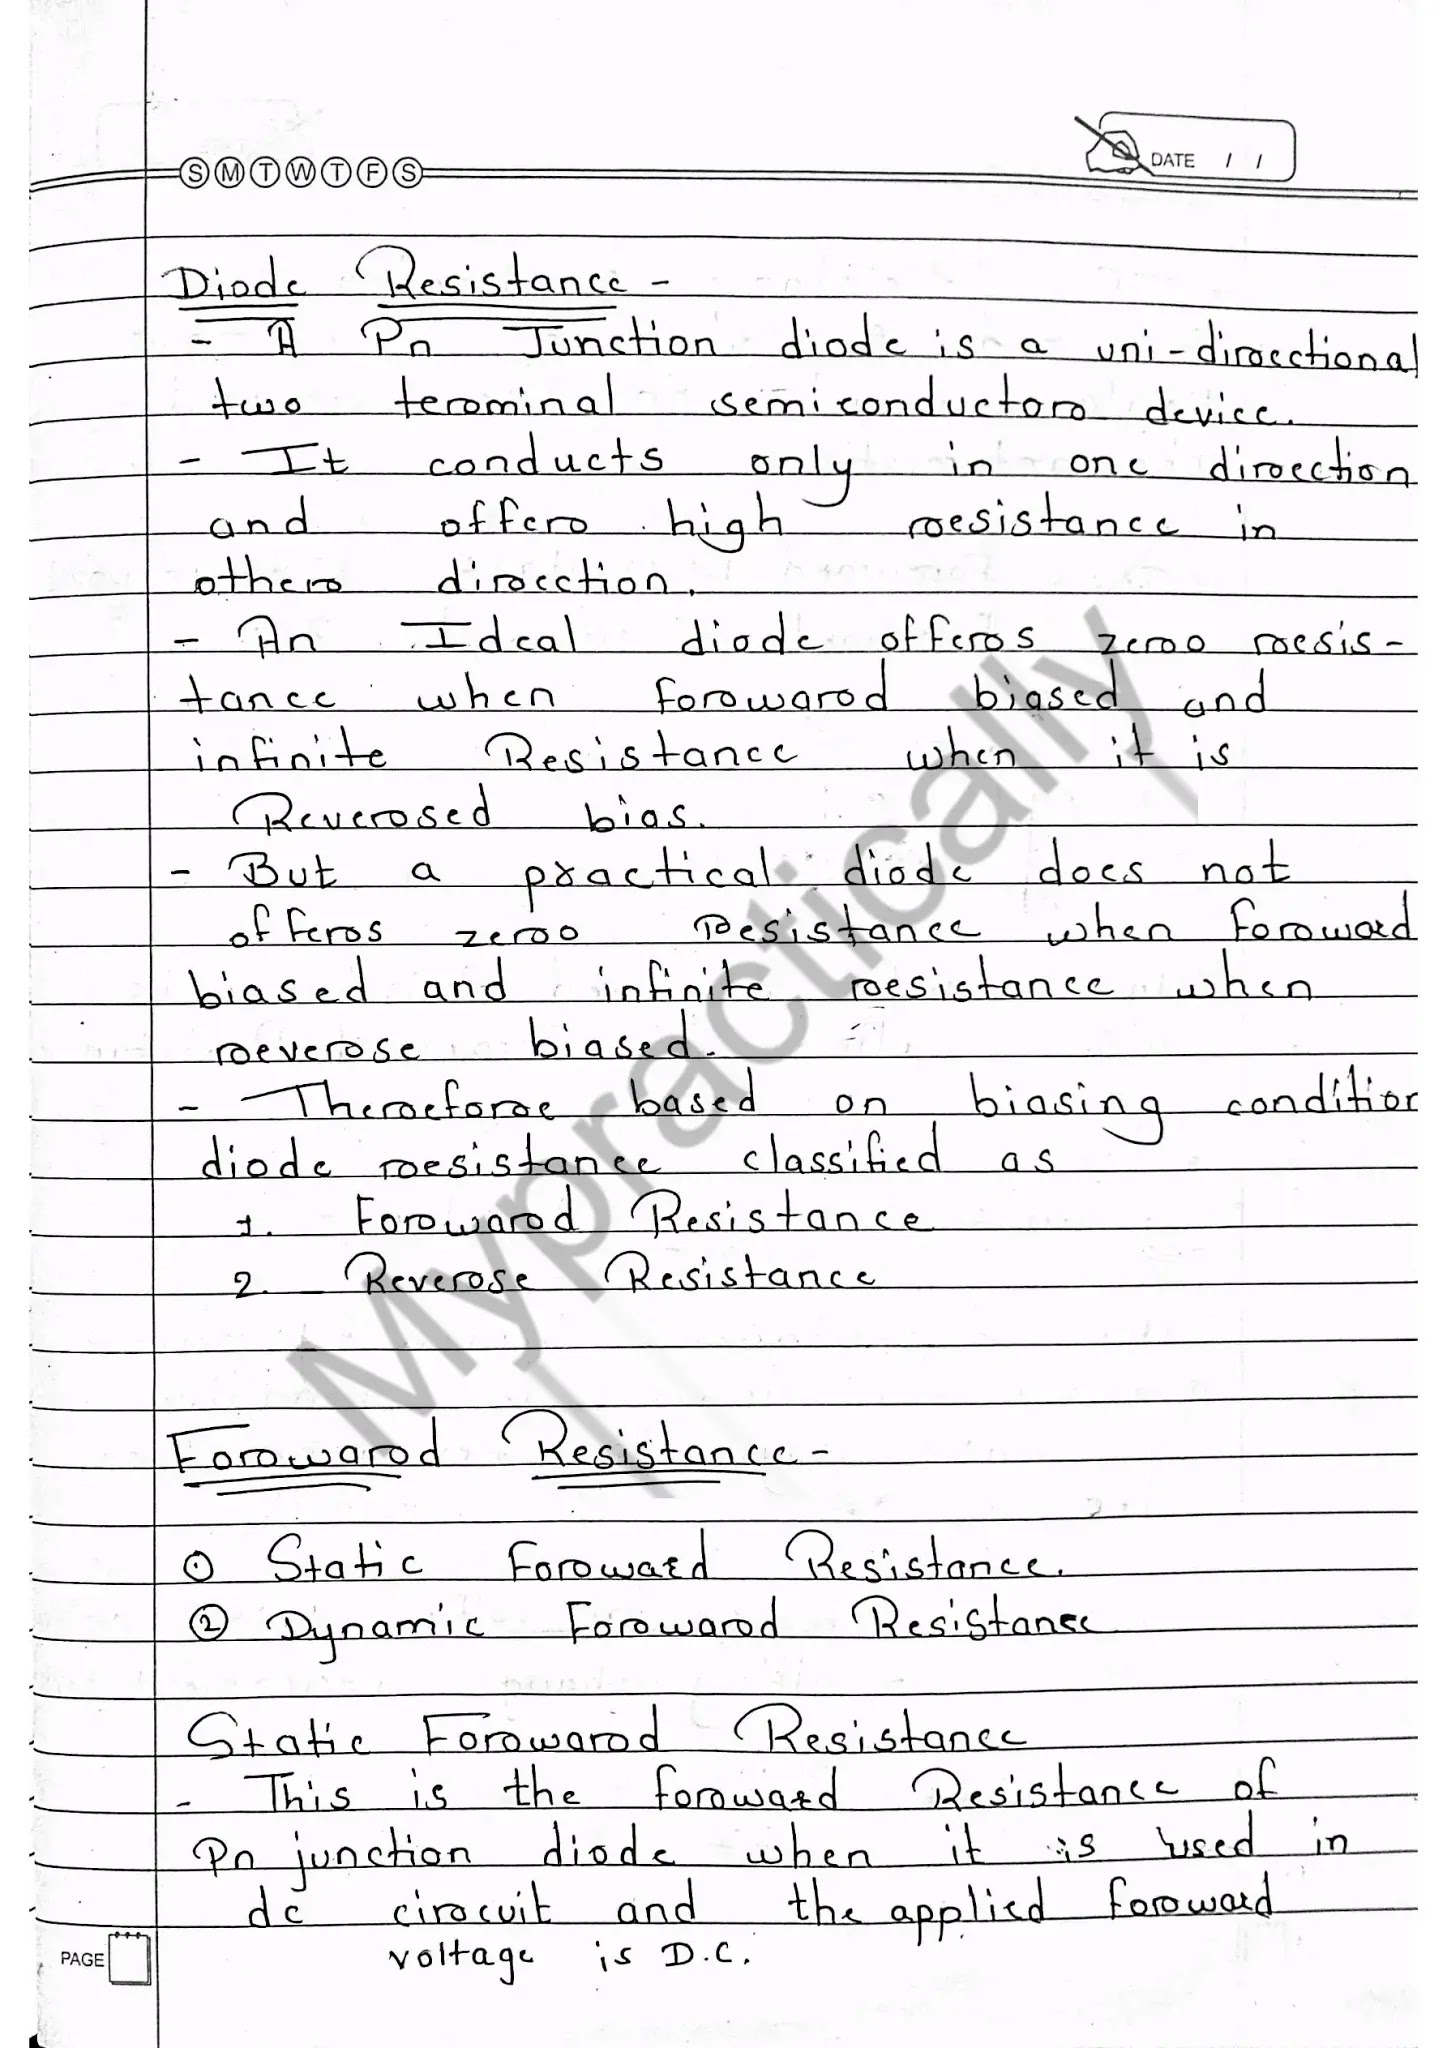 SMTWTFS
DATE / /
Diode Resistance -
- A Pn Junction diode is a uni-directional
two terminal semiconductor device.
- It conducts only in one direction
and offer high resistance in
other direction.
- An Ideal diode offers zero resis-
tance when forward biased and
infinite Resistance when it is
Reversed bias.
- But a practical diode does not
offers zero Resistance when forward
biased and infinite resistance when
reverse biased.
- Therefore based on biasing condition
diode resistance classified as
1. Forward Resistance
2. Reverse Resistance
Forward Resistance -
① Static Forward Resistance.
② Dynamic Forward Resistance
Static Forward Resistance
- This is the forward Resistance of
Pn junction diode when it is used in
dc circuit and the applied forward
voltage is D.C.
PAGE
Mypractically